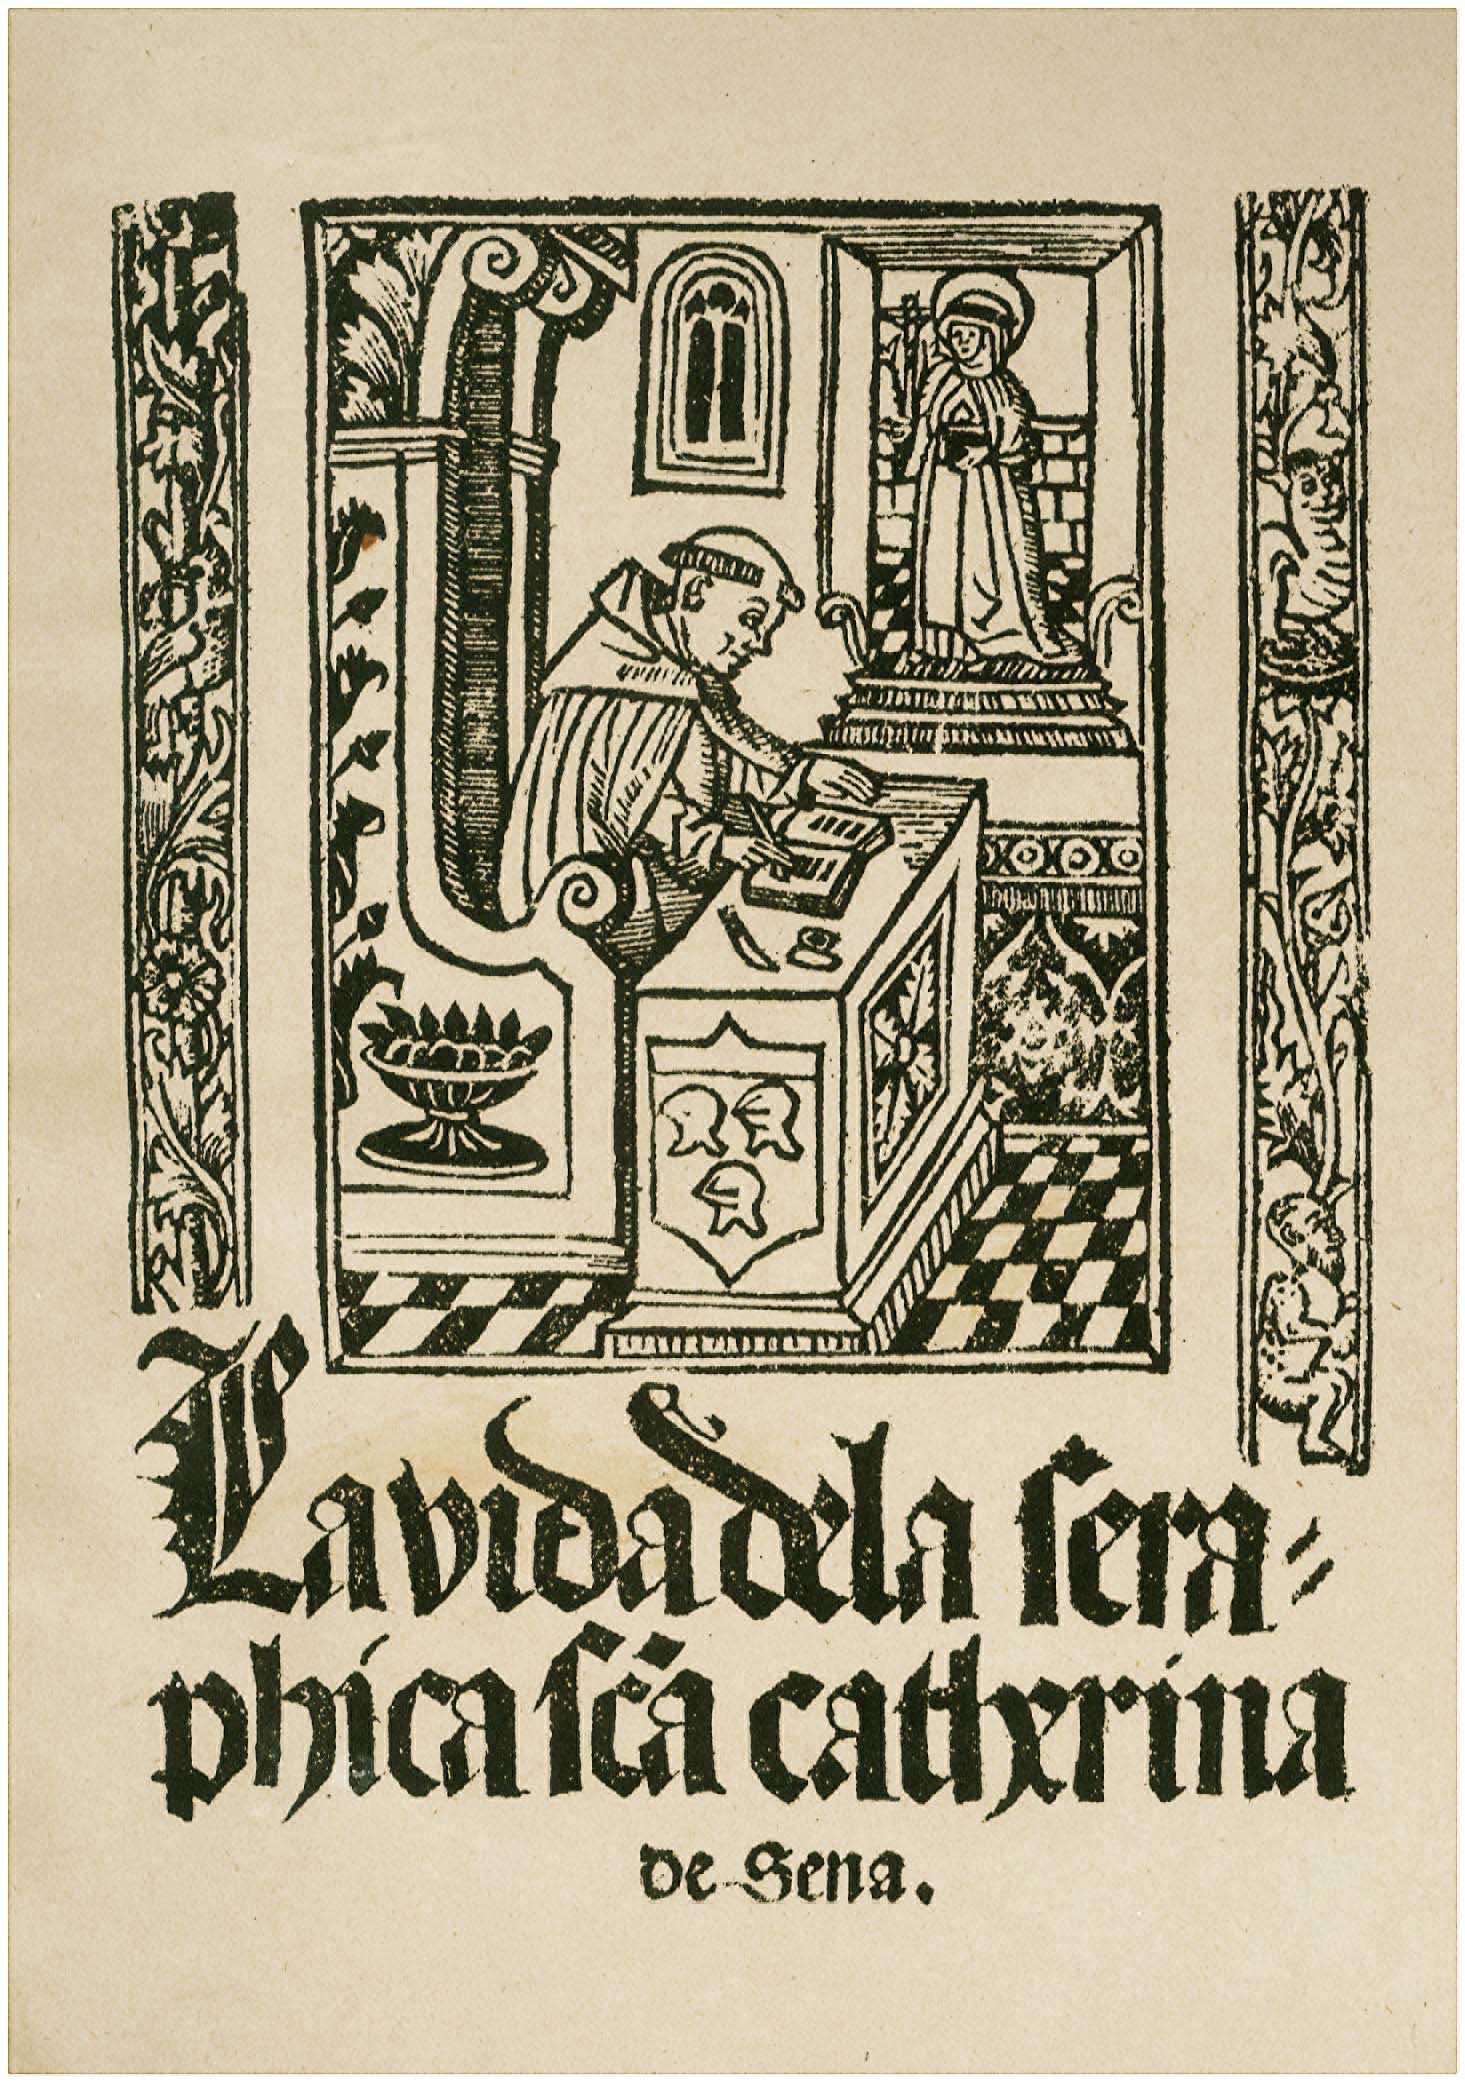 La vida dela sera=
phica scã catherina
de Sena.